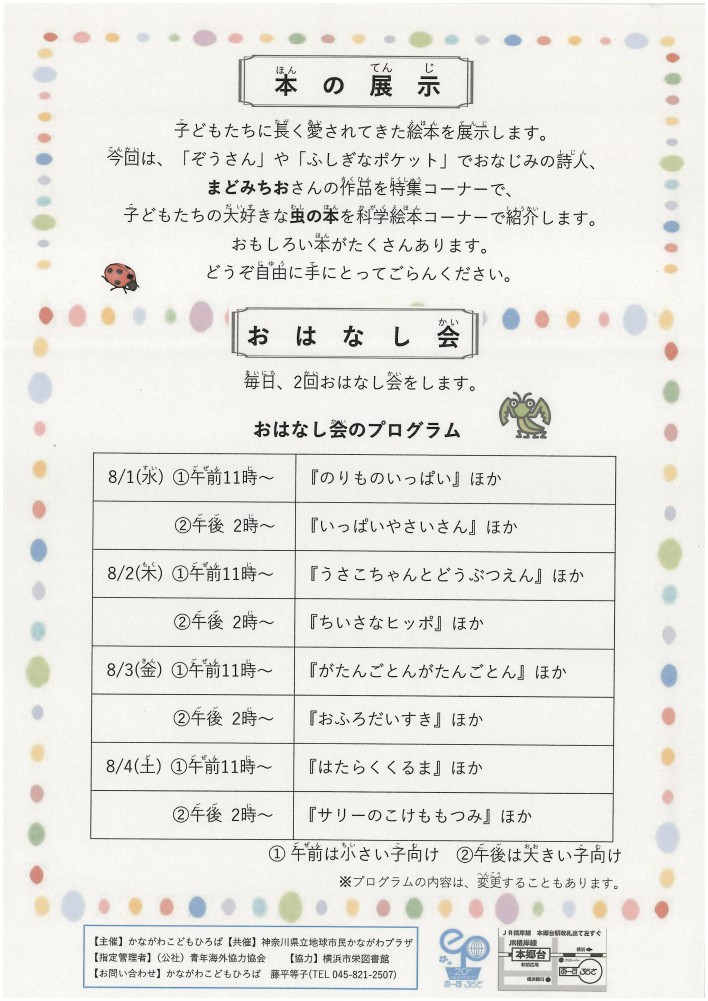 本の展示
子どもたちに長く愛されてきた絵本を展示します。
今回は、「ぞうさん」や「ふしぎなポケット」でおなじみの詩人、
まどみちおさんの作品を特集コーナーで、
子どもたちの大好きな虫の本を科学絵本コーナーで紹介します。
おもしろい本がたくさんあります。
どうぞ自由に手にとってごらんください。
おはなし会
毎日、2回おはなし会をします。
おはなし会のプログラム
8/1(水) ①午前11時～ 『のりものいっぱい』ほか
②午後 2時～ 『いっぱいやさいさん』ほか
8/2(木) ①午前11時～ 『うさこちゃんとどうぶつえん』ほか
②午後 2時～ 『ちいさなヒッポ』ほか
8/3(金) ①午前11時～ 『がたんごとんがたんごとん』ほか
②午後 2時～ 『おふろだいすき』ほか
8/4(土) ①午前11時～ 『はたらくくるま』ほか
②午後 2時～ 『サリーのこけももつみ』ほか
① 午前は小さい子向け ②午後は大きい子向け
※プログラムの内容は、変更することもあります。
【主催】かながわこどもひろば【共催】神奈川県立地球市民かながわプラザ
【指定管理者】(公社) 青年海外協力協会 【協力】横浜市栄図書館
【お問い合わせ】かながわこどもひろば 藤平等子(TEL 045-821-2507)
ep
20
JR根岸線 本郷台駅改札出て左すぐ
JR根岸線
本郷台
横浜
横浜銀行